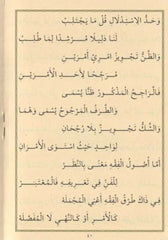 وَحَدُّ الِاسْتِدْلَالِ قُلْ مَا يَجْتَلِبْ
لَنَا دَلِيلًا مُرْشِدًا لِمَا طُلِبْ
وَالظَّنُّ تَجْوِيزُ امْرِئٍ أَمْرَيْنِ
مُرَجِّحًا لِأَحَدِ الْأَمْرَيْنِ
فَالرَّاجِحُ الْمَذْكُورُ ظَنًّا يُسْمَى
وَالطَّرَفُ الْمَرْجُوحُ يُسْمَى وَهْمَا
وَالشَّكُّ تَجْوِيزٌ بِلَا رُجْحَانِ
لِوَاحِدٍ حَيْثُ اسْتَوَى الْأَمْرَانِ
أَمَّا أُصُولُ الْفِقْهِ مَعْنًى بِالنَّظَرْ
لِلْفَنِّ فِي تَعْرِيفِهِ فَالْمُعْتَبَرْ
فِي ذَاكَ طُرْقُ الْفِقْهِ أَعْنِي الْمُجْمَلَهْ
كَالْأَمْرِ أَوْ كَالنَّهْيِ لَا الْمُفَصَّلَهْ